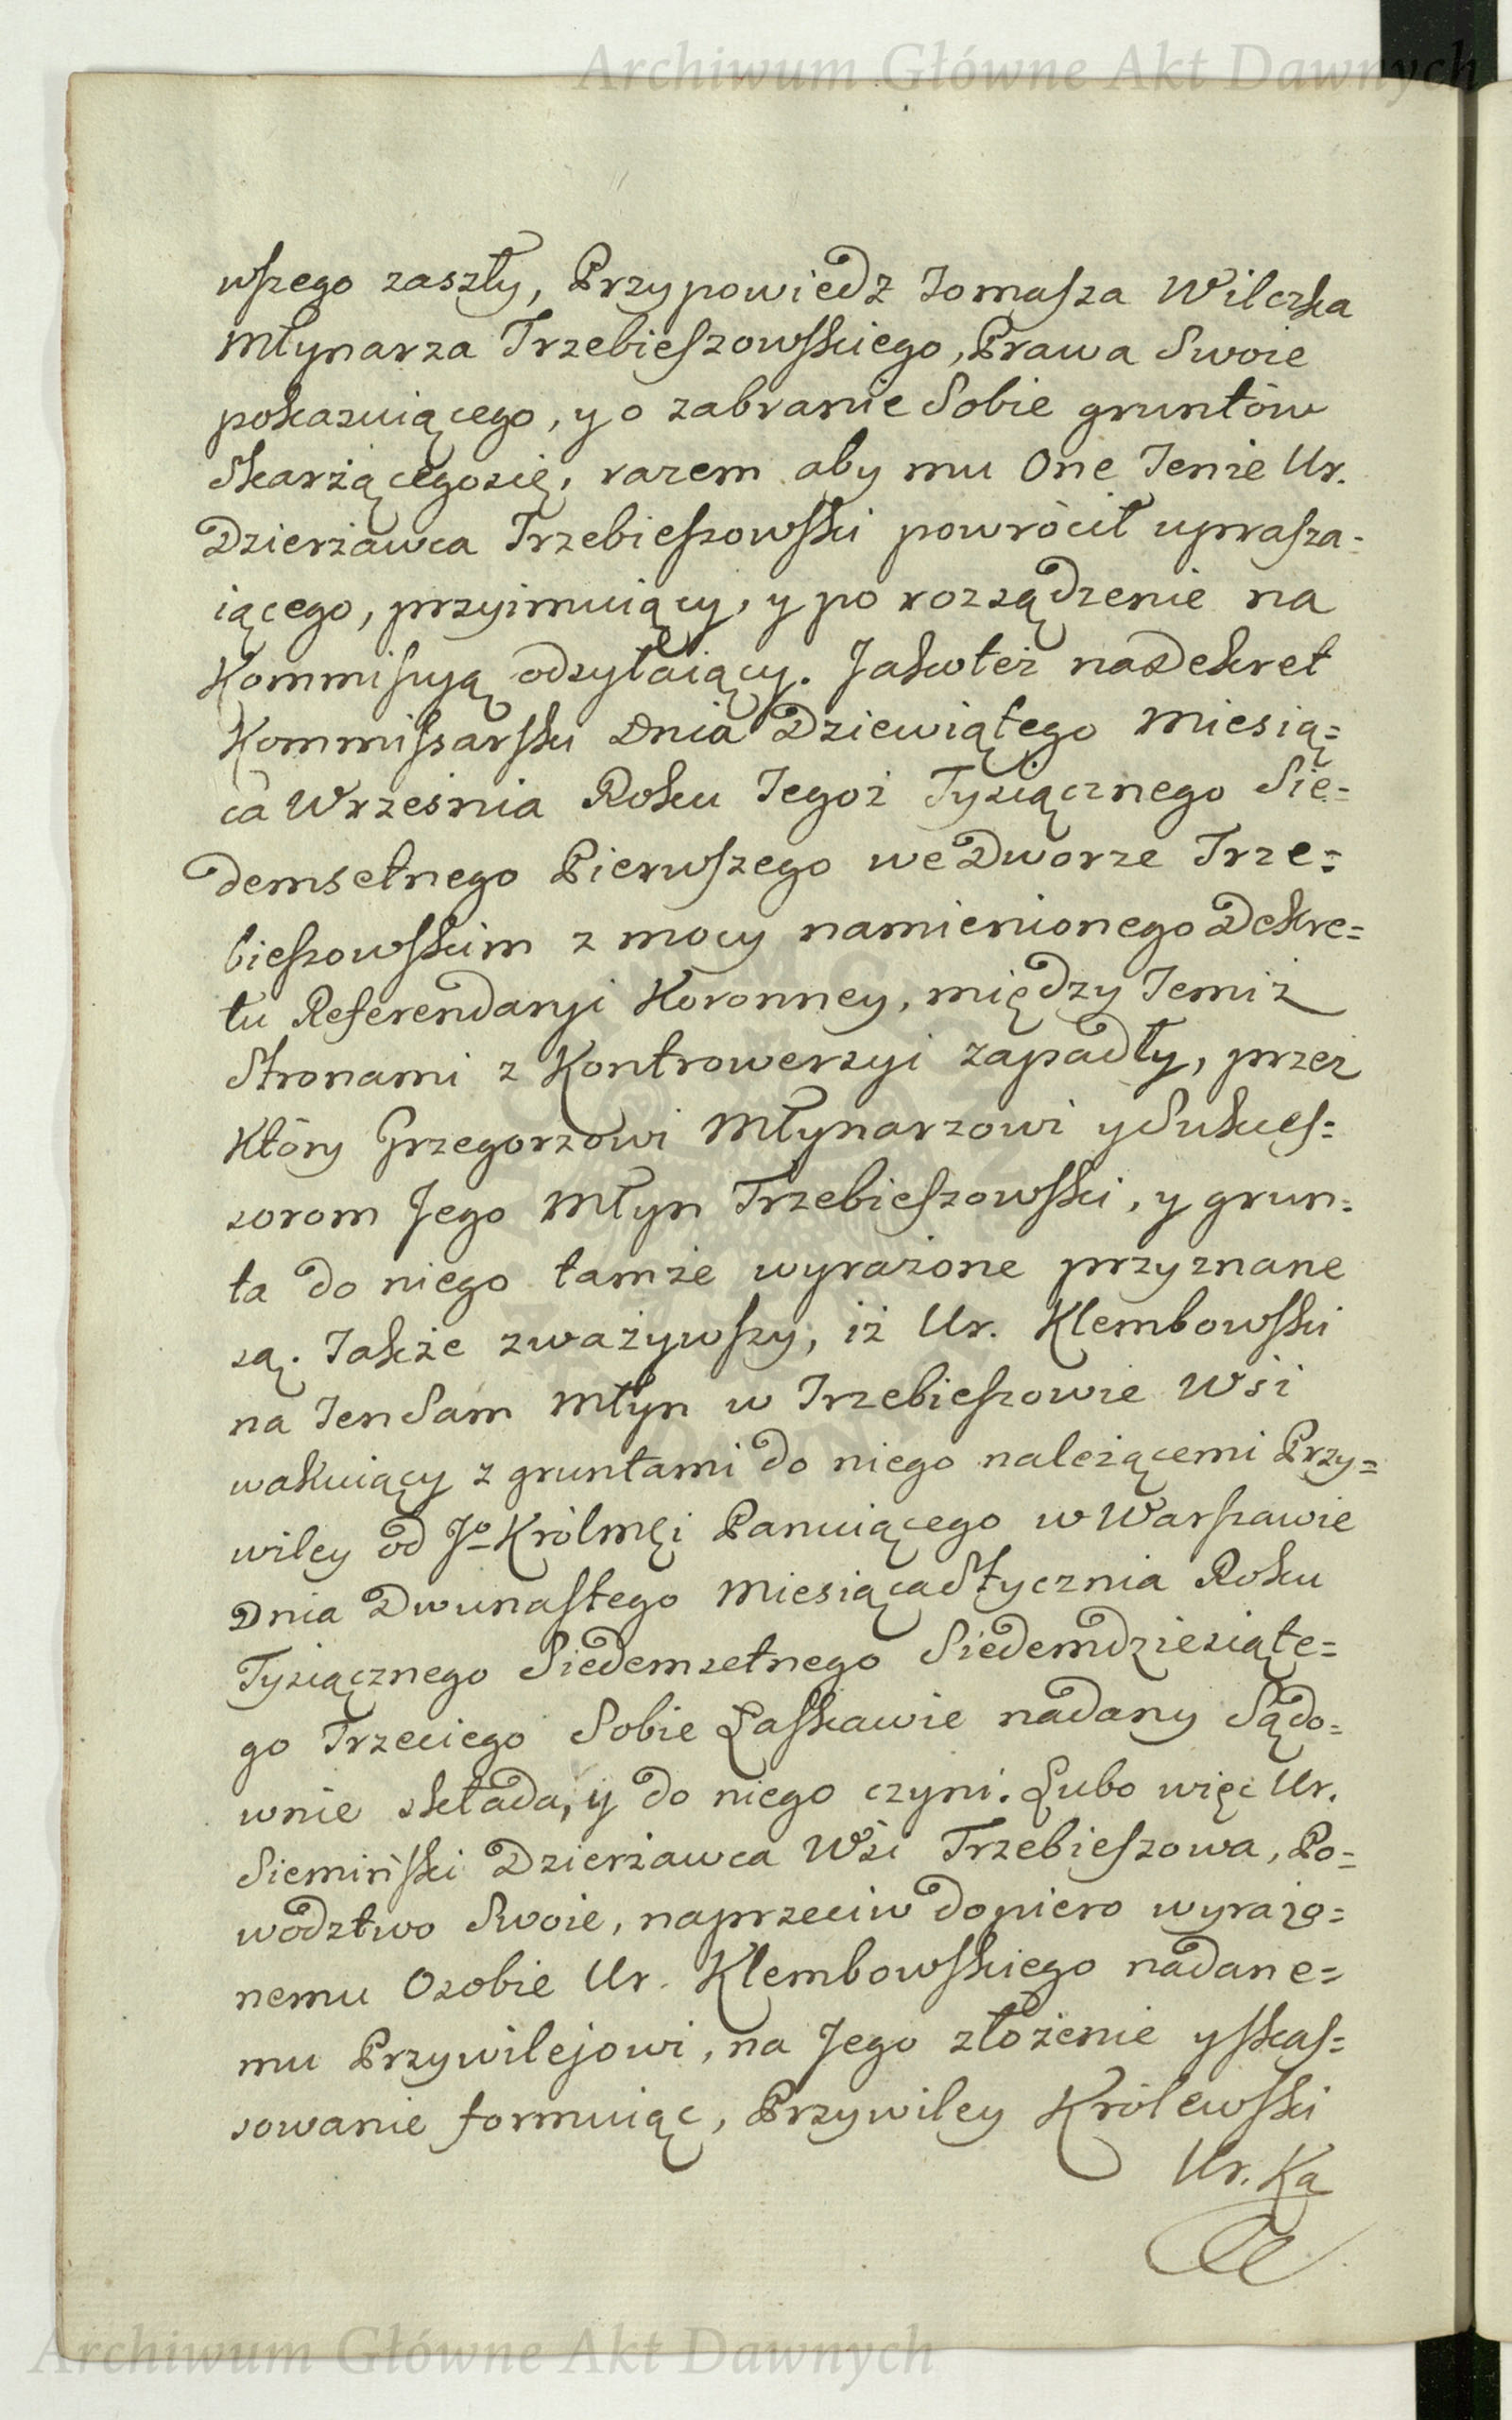 Archiwum Główne Akt Dawnych
wszego zaszły, Przypowiedz Tomasza Wilczka
Młynarza Trzebieszowskiego, Prawa Swoie
pokazuiącego, y o zabranie Sobie gruntów
Skarżącegosię, razem aby mu One Tenże Ur.
Dzierżawca Trzebieszowski powrócił uprasza-
iącego, przyimuiący, y po rozsądzenie na
Kommissyą odsyłaiący. Jakoteż na Dekret
Kommissarski Dnia Dziewiątego Miesią=
ca Września Roku Tegoż Tysiącznego Sie=
demsetnego Pierwszego we Dworze Trze=
bieszowskim z mocy namienionego Dekre=
tu Referendaryi Koronney, między Temiż
Stronami z Kontrowersyi zapadły, przez
Który Grzegorzowi Młynarzowi y Sukces=
sorom Jego Młyn Trzebieszowski, y grun=
ta do niego tamże wyrażone przyznane
są. Także zważywszy, iż Ur. Klembowski
na Ten Sam Młyn w Trzebieszowie Wśi
wakuiący z gruntami do niego należącemi Przy=
wiley od Jo Królmći Panuiącego w Warszawie
Dnia Dwunastego Miesiąca Stycznia Roku
Tysiącznego Siedemsetnego Siedemdziesiąte=
go Trzeciego Sobie Łaskawie nadany Sądo=
wnie składa, y do niego czyni. Lubo więc Ur.
Siemiński Dzierżawca Wśi Trzebieszowa, Po=
wództwo Swoie, naprzeciw dopiero wyrażo=
nemu Osobie Ur. Klembowskiego nadane=
mu Przywilejowi, na Jego złożenie y skas=
sowanie formuiąc, Przywiley Królewski
Ur. Ka
Archiwum Główne Akt Dawnych